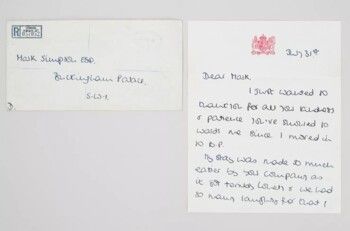 Mark Simpson ESQ.
Buckingham Palace,
S.W.1.
July 31st
Dear Mark,
I just wanted to
thank you for all your kindness
& patience you've showed to
wards me since I moved in
to B.P.
My stay was made so much
easier by your company as
it got lonely &
so many laughs for that!